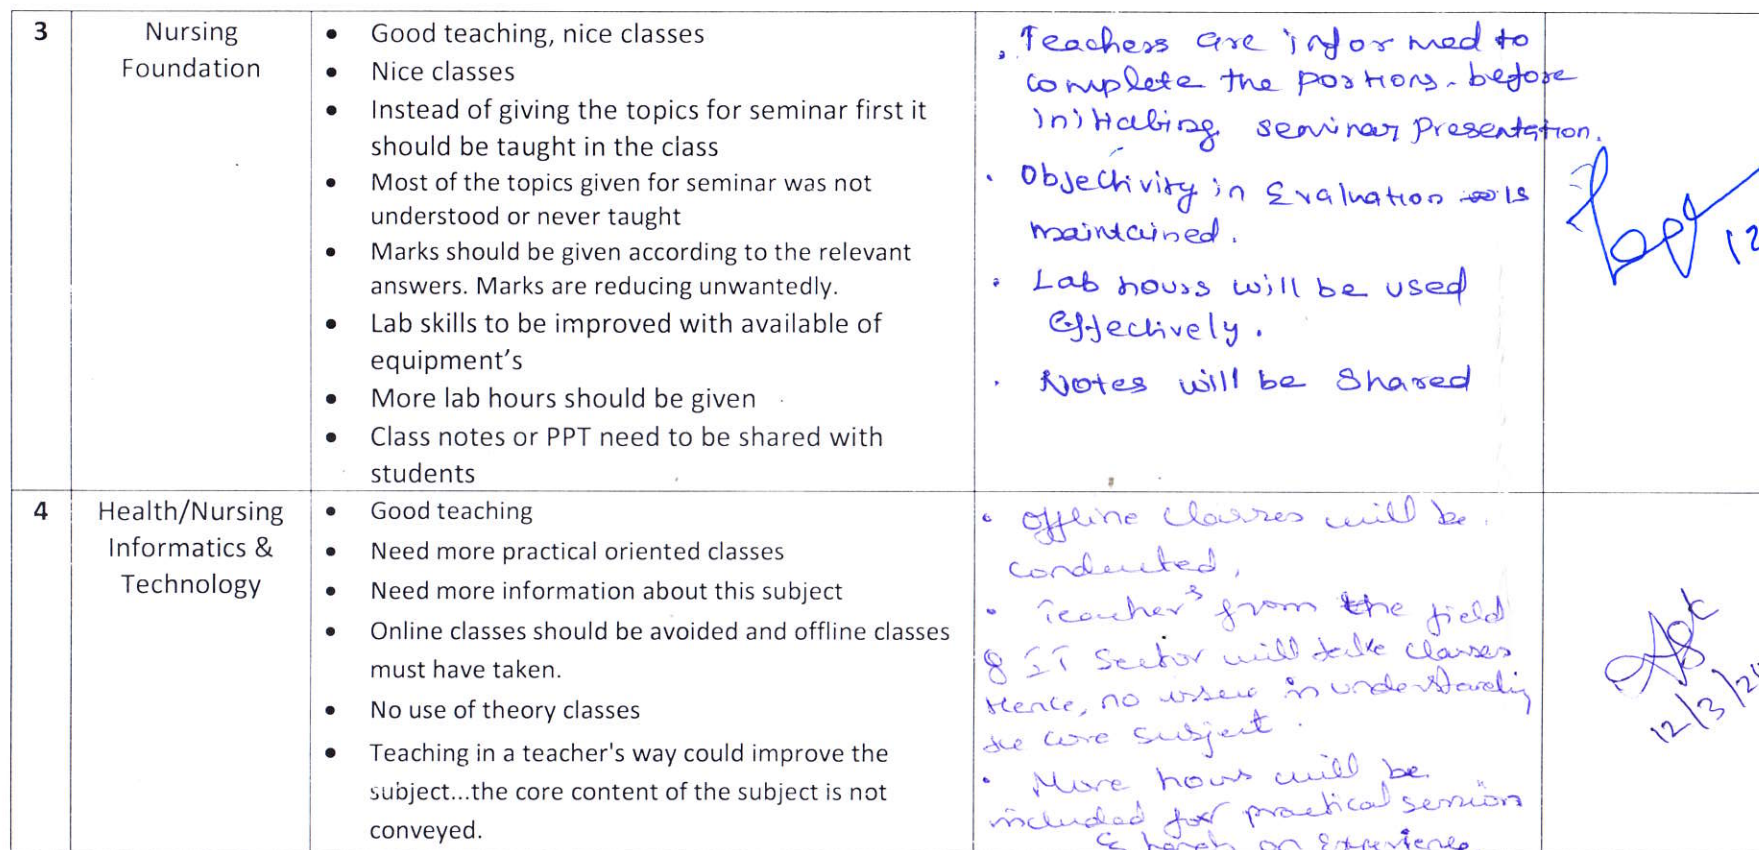 3
Nursing
Foundation
• Good teaching, nice classes
• Nice classes
• Instead of giving the topics for seminar first it
should be taught in the class
• Most of the topics given for seminar was not
understood or never taught
• Marks should be given according to the relevant
answers. Marks are reducing unwantedly.
• Lab skills to be improved with available of
equipment's
• More lab hours should be given
• Class notes or PPT need to be shared with
students
. Teachers are informed to
complete the portions before
initiating seminar presentation.
. Objectivity in Evaluation is
maintained.
. Lab hours will be used
Effectively.
. Notes will be Shared
12
4
Health/Nursing
Informatics &
Technology
• Good teaching
• Need more practical oriented classes
• Need more information about this subject
• Online classes should be avoided and offline classes
must have taken.
• No use of theory classes
• Teaching in a teacher's way could improve the
subject...the core content of the subject is not
conveyed.
• Offline classes will be
conducted,
• Teachers from the field
& IT Sector will take classes
Hence, no issue in understanding
the core subject.
• More hours will be
included for practical session
& hands on Experience
12/3/24